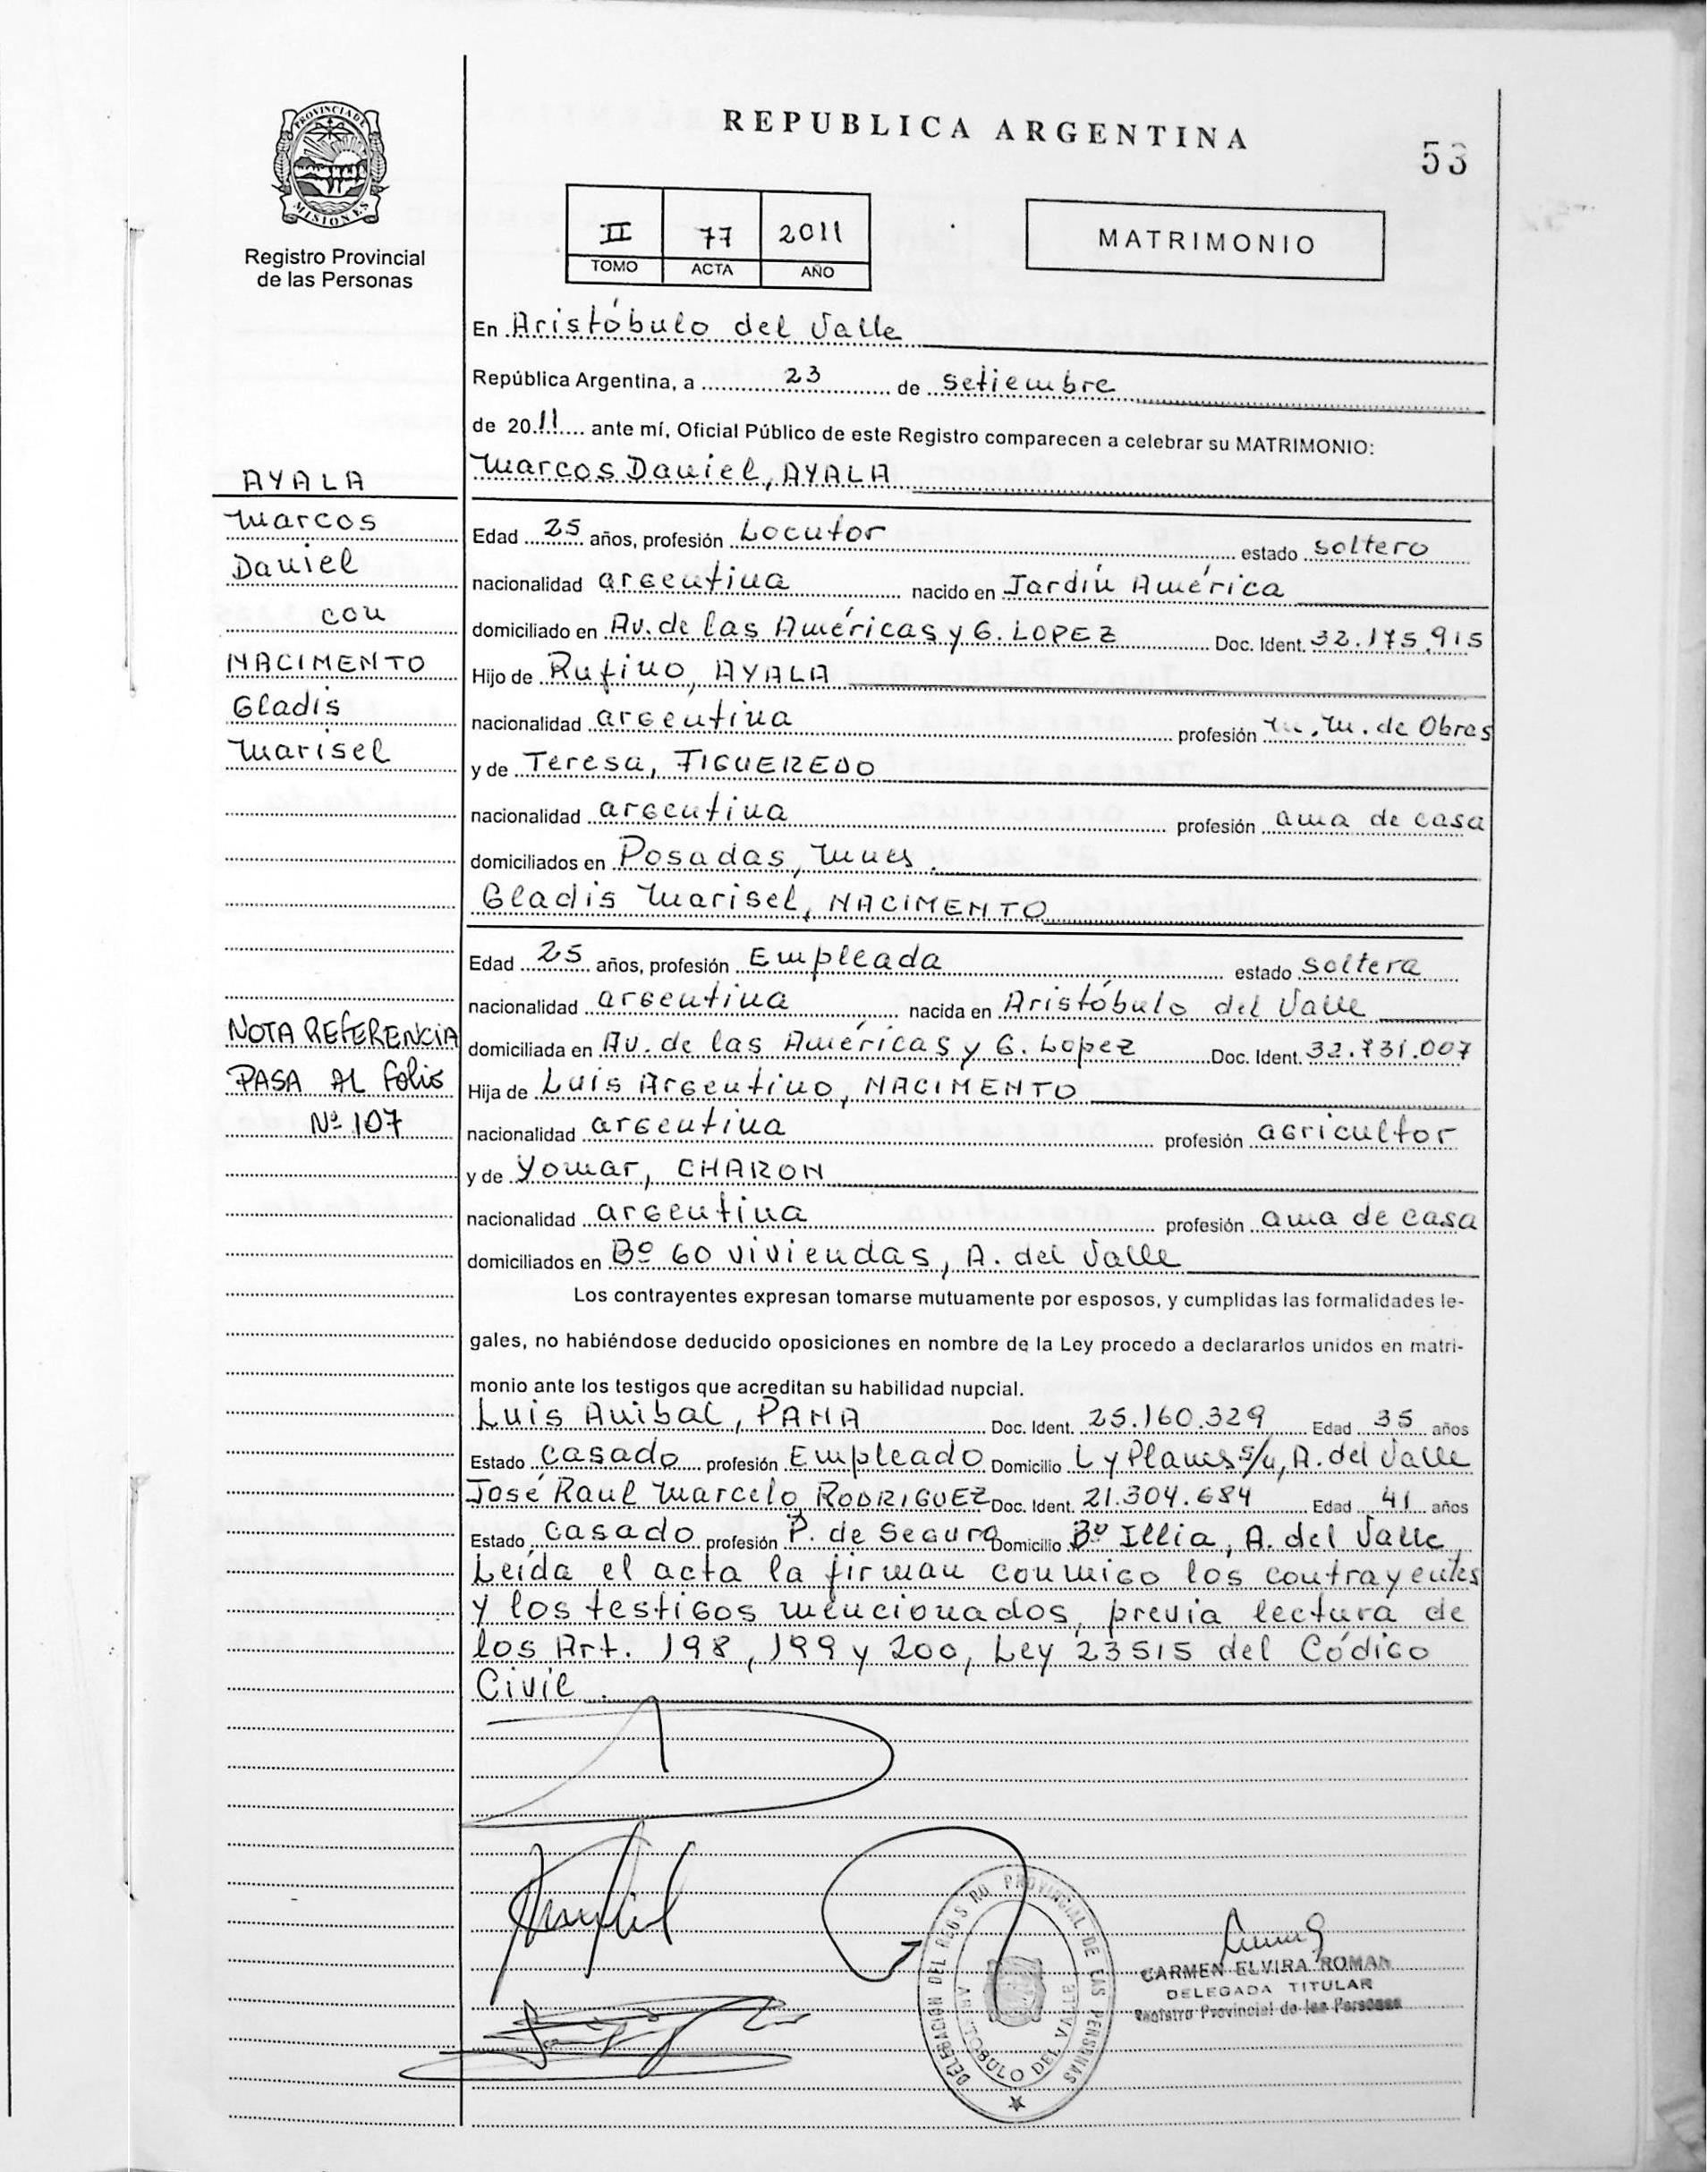 PROVINCIA DE
MISIONES
Registro Provincial
de las Personas
REPUBLICA ARGENTINA
53
II 77 2011
TOMO ACTA AÑO
MATRIMONIO
En Aristóbulo del Valle
República Argentina, a 23 de Setiembre
de 2011 ante mí, Oficial Público de este Registro comparecen a celebrar su MATRIMONIO:
Marcos Daniel, AYALA
Edad 25 años, profesión Locutor estado soltero
nacionalidad argentina nacido en Jardín América
domiciliado en Av. de las Américas y G. LOPEZ Doc. Ident. 32.175.915
Hijo de Rufino, AYALA
nacionalidad argentina profesión m.m. de Obras
y de Teresa, FIGUEREDO
nacionalidad argentina profesión ama de casa
domiciliados en Posadas, Mnes.
Gladis Marisel, NACIMENTO
Edad 25 años, profesión Empleada estado soltera
nacionalidad argentina nacida en Aristóbulo del Valle
domiciliada en Av. de las Américas y G. Lopez Doc. Ident. 32.731.007
Hija de Luis Argentino, NACIMENTO
nacionalidad argentina profesión agricultor
y de Yomar, CHARON
nacionalidad argentina profesión ama de casa
domiciliados en Bº 60 viviendas, A. del Valle
Los contrayentes expresan tomarse mutuamente por esposos, y cumplidas las formalidades le-
gales, no habiéndose deducido oposiciones en nombre de la Ley procedo a declararlos unidos en matri-
monio ante los testigos que acreditan su habilidad nupcial.
Luis Anibal, PANA Doc. Ident. 25.160.329 Edad 35 años
Estado casado profesión Empleado Domicilio L y Planes s/n, A. del Valle
José Raul Marcelo, RODRIGUEZ Doc. Ident. 21.304.684 Edad 41 años
Estado casado profesión P. de Seguro Domicilio Bº Illia, A. del Valle
Leída el acta la firman conmigo los contrayentes
y los testigos mencionados, previa lectura de
los Art. 198, 199 y 200, Ley 23515 del Código
Civil.
AYALA
Marcos
Daniel
con
NACIMENTO
Gladis
Marisel
NOTA REFERENCIA
PASA AL folio
Nº 107
DELEGACION DEL REGISTRO PROVINCIAL DE LAS PERSONAS
ARISTOBULO DEL VALLE
CARMEN ELVIRA ROMAN
DELEGADA TITULAR
Registro Provincial de las Personas